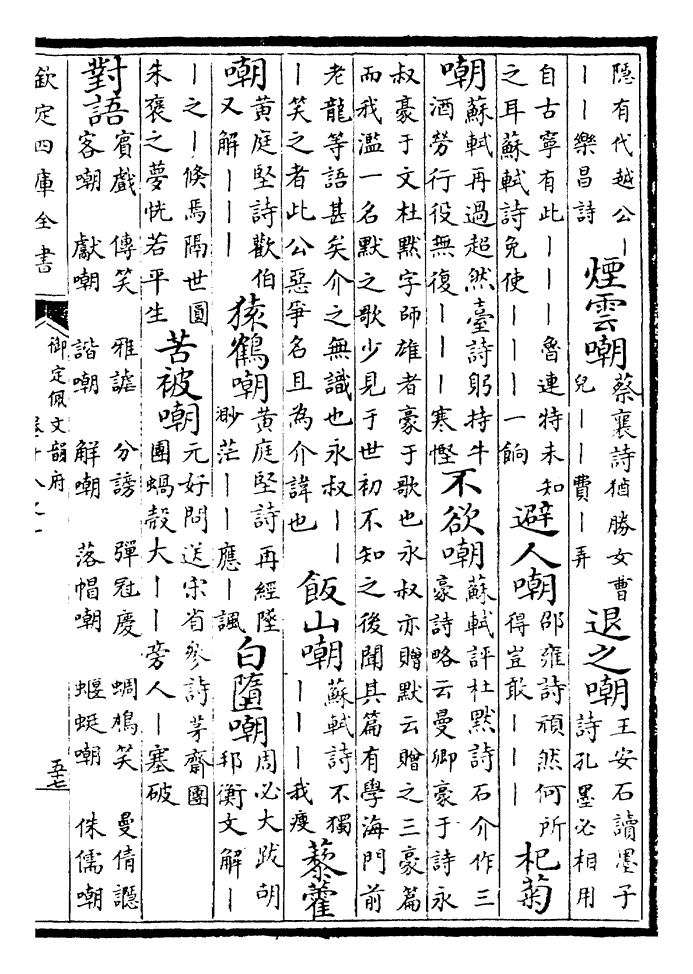 隠有代越公丨
丨丨樂昌詩
煙雲嘲
蔡襄詩猶勝女曹
兒丨丨費丨弄
退之嘲
王安石讀墨子
詩孔墨必相用
自古寧有此丨丨丨魯連特未知
之耳蘇軾詩免使丨丨丨一餉
避人嘲
邵雍詩頑然何所
得豈敢丨丨丨
杞菊
嘲
蘇軾再過超然臺詩躬持牛
酒勞行役無復丨丨丨寒慳
不欲嘲
蘇軾評杜黙詩石介作三
豪詩略云曼卿豪于詩永
叔豪于文杜黙字師雄者豪于歌也永叔亦贈黙云贈之三豪篇
而我濫一名黙之歌少見于世初不知之後聞其篇有學海門前
老龍等語甚矣介之無識也永叔丨丨
丨笑之者此公惡爭名且為介諱也
飯山嘲
蘇軾詩不獨
丨丨丨我瘦
藜藿
嘲
黄庭堅詩歡伯
又解丨丨丨
猿鶴嘲
黄庭堅詩再經
渺茫丨丨應丨諷
白墮嘲
周必大跋胡
邦衡文解丨
丨之丨倏焉隔世圓
朱襃之夢恍若平生
苦被嘲
元好問送宋省參詩茅齋團
團蝸殼大丨丨旁人丨塞破
對語
賓戲 傳笑 雅謔 分謗 彈冠慶 蜩鳩笑 曼倩讔
客嘲 獻嘲 諧嘲 解嘲 落帽嘲 蝘蜓嘲 侏儒嘲
欽定四庫全書
御定佩文韻府
五七